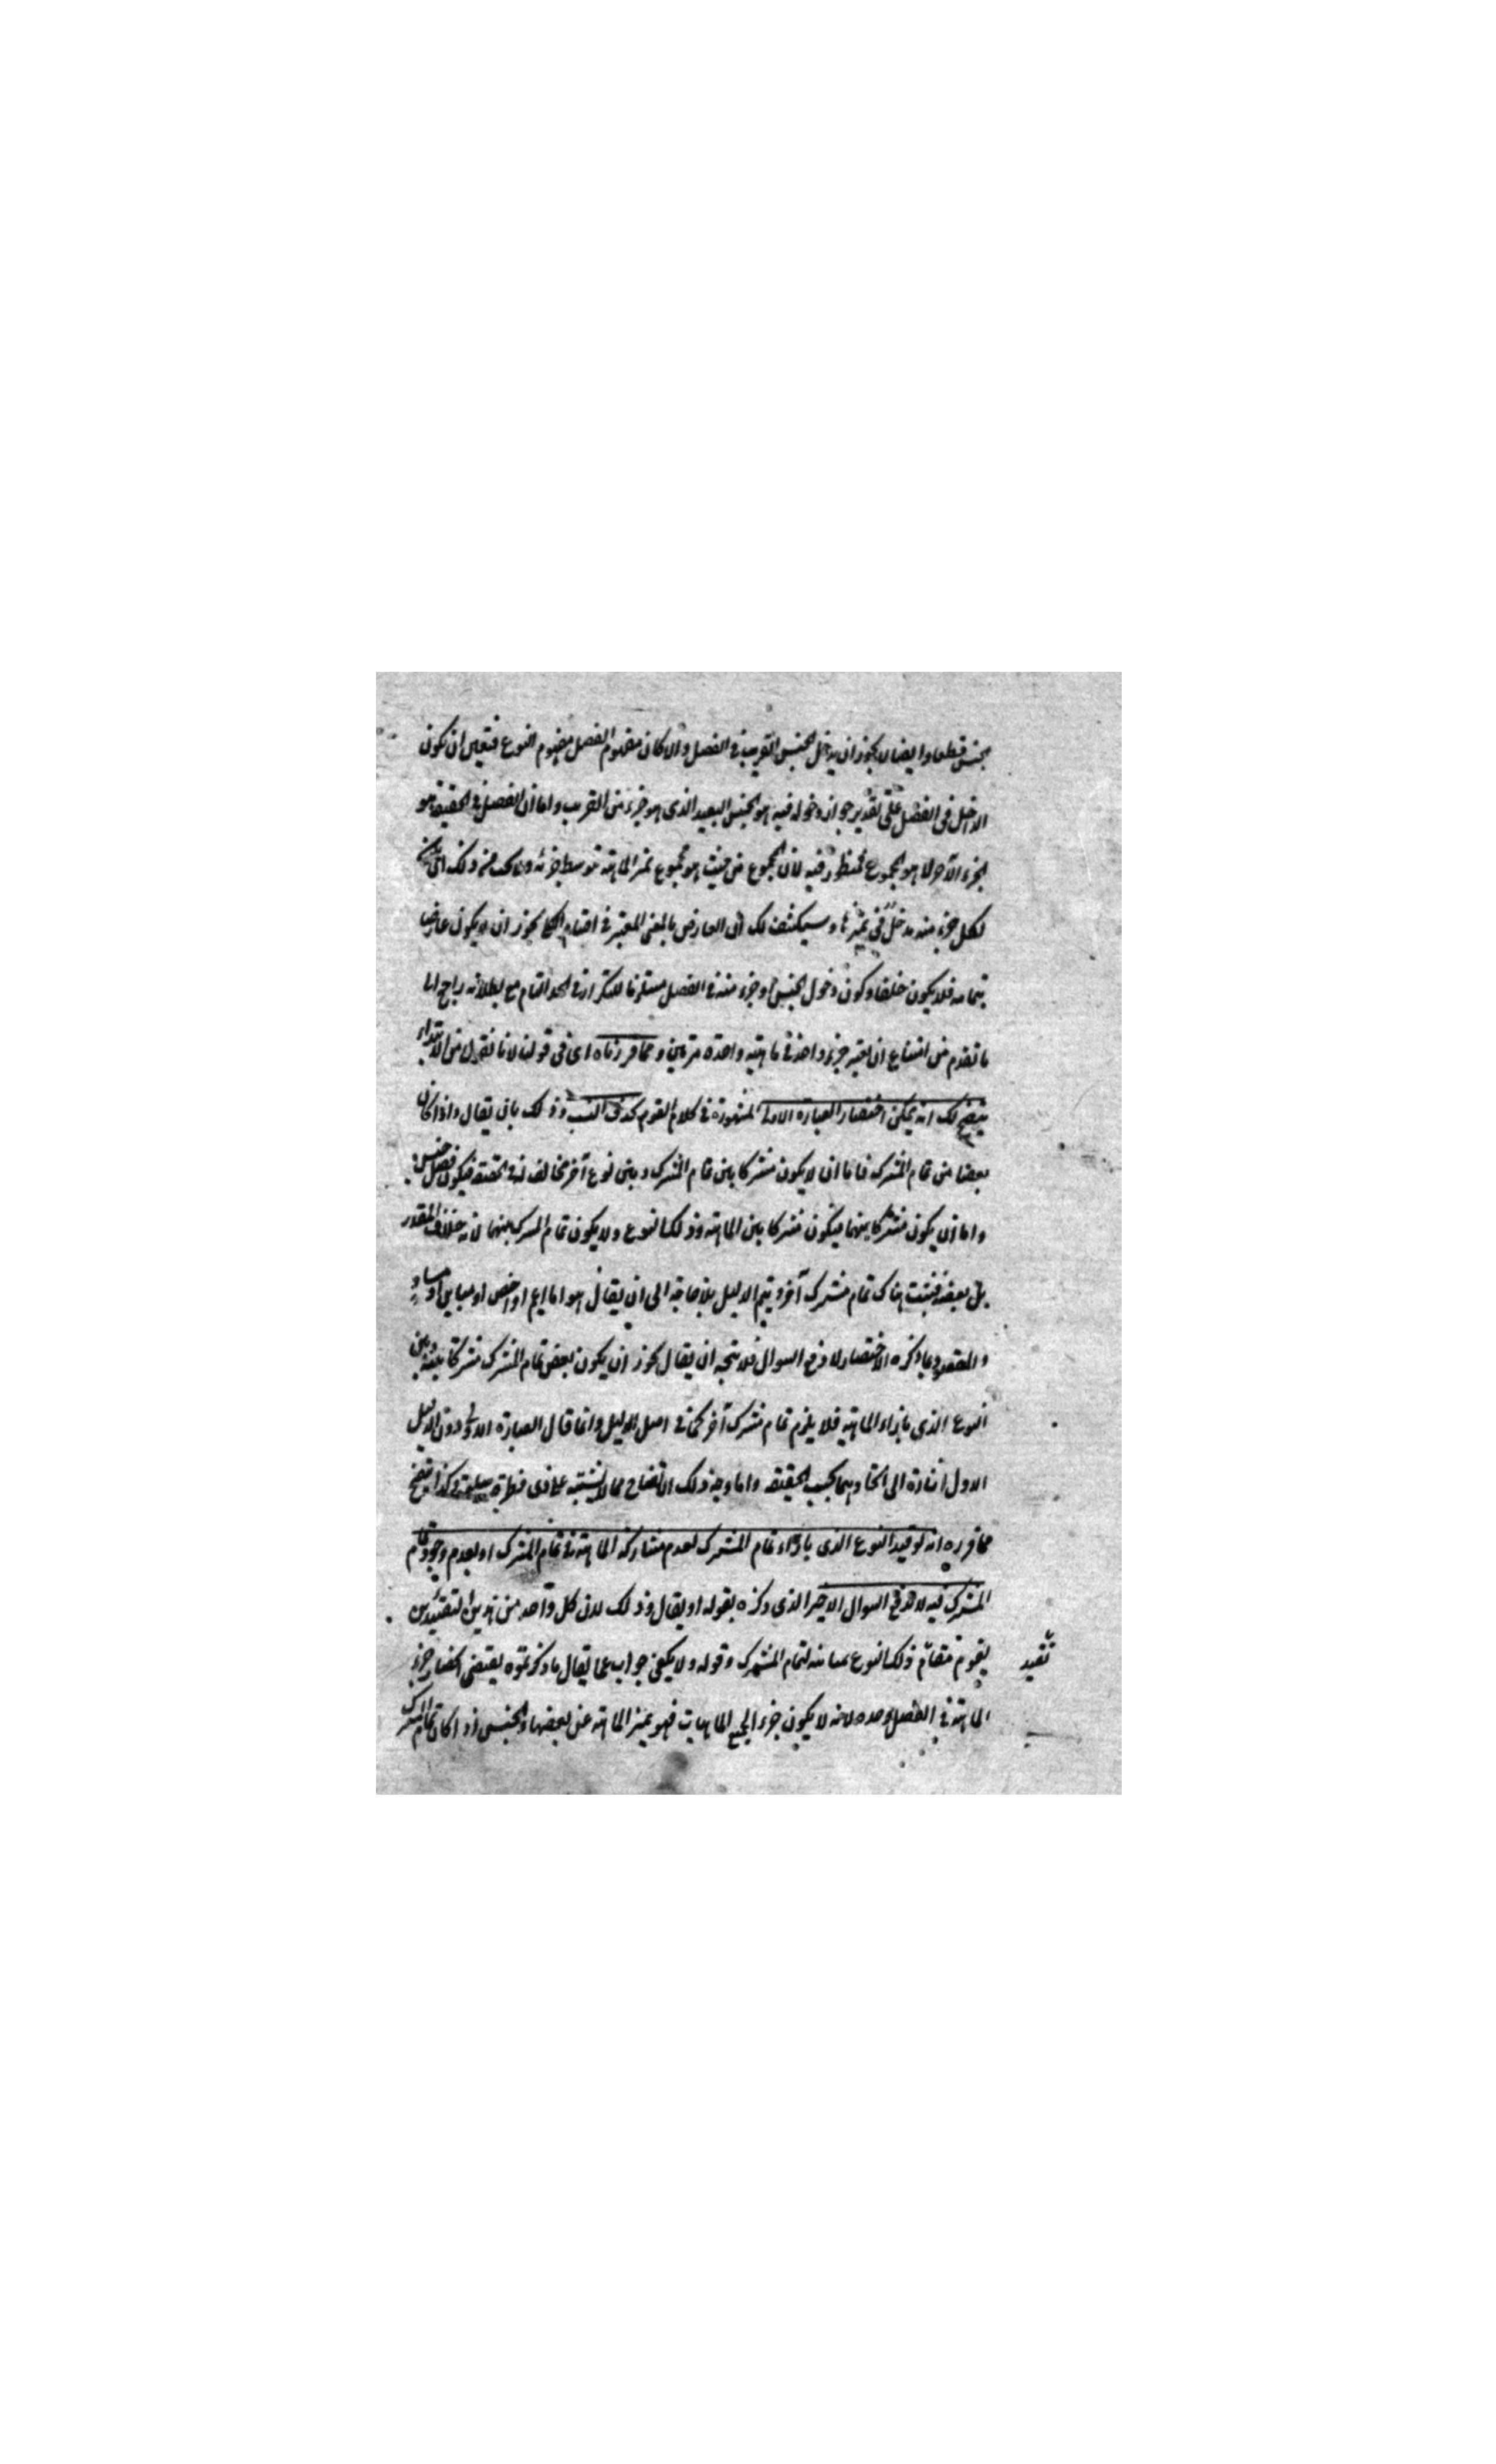 بجنس قطعا وايضا لا يجوز ان يدخل الجنس القريب في الفصل والا كان مفهوم الفصل مفهوم النوع فتعين ان يكون
الداخل في الفصل على تقدير جواز دخوله فيه هو الجنس البعيد الذى هو جزء من القريب واما ان الفصل في الحقيقة هو
الجزء الآخر لا هو المجموع فمنظور فيه لان المجموع من حيث هو مجموع تميز الماهية بتوسط جزئه ولا يجب في ذلك ان يكون
لكل جزء منه مدخل في تميزها وسيكشف لك ان العارض بالمعنى المعتبر في اقسام الكلي يجوز ان لا يكون عارضا
بتمامه فلا يكون خلفا وكون دخول الجنس او جزء منه في الفصل مستلزما للتكرار في الحد التام مع بطلانه راجع الى
ما تقدم من امتناع ان يعتبر جزء واحد في ماهية واحدة مرتين ومما قررناه اى في قولنا لانا نقول من الابتداء
يتضح لك انه يمكن اختصار العبارة الاولى المشهورة في كلام القوم بحذف النسب وذلك بان يقال واذا كان
بعضا من تمام المشترك فاما ان لا يكون مشتركا بين تمام المشترك وبين نوع آخر مخالف له في الحقيقة فيكون فصل جنس
واما ان يكون مشتركا بينهما فيكون مشتركا بين الماهية وذلك النوع ولا يكون تمام المشترك بينهما لانه خلاف المقدر
بل بعضه فيثبت هناك تمام مشترك آخر ويتم الدليل بلا حاجة الى ان يقال هو اما اعم او اخص او مباين او مساو
والمقصود بما ذكره الاختصار لا دفع السوال فلا يتجه ان يقال يجوز ان يكون بعض تمام المشترك مشتركا بينه وبين
النوع الذى بازاء الماهية فلا يلزم تمام مشترك آخر كما في اصل الدليل وانما قال العبارة الاولى دون الدليل
الاول اشارة الى اتحادهما بحسب الحقيقة واما وجه ذلك الاتضاح مما لا يشتبه على ذى فطرة سليمة وكذا يتضح
مما قرره انه لو قيد النوع الذى بازاء تمام المشترك لعدم مشاركة الماهية في تمام المشترك او لعدم وجود تمام
المشترك فيه لاندفع السوال الاخير الذى ذكره بقوله او يقال وذلك لان كل واحد من هذين التقييدين
يقوم مقام ذلك النوع لتمام المشترك وقوله ولا يكفى جواب عما يقال ما ذكرتموه يقتضى انحصار جزء
تقييد
الماهية في الفصل وحده لانه لا يكون جزء الجميع الماهيات فهو يميز الماهية عن بعضها والجنس اذا كان تمام المشترك